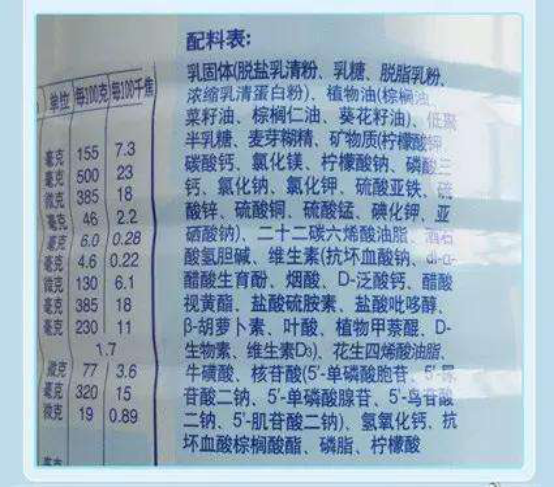 配料表:
乳固体(脱盐乳清粉、乳糖、脱脂乳粉、
浓缩乳清蛋白粉)、植物油(棕榈油、
菜籽油、棕榈仁油、葵花籽油)、低聚
半乳糖、麦芽糊精、矿物质(柠檬酸钾、
碳酸钙、氯化镁、柠檬酸钠、磷酸三
钙、氯化钠、氯化钾、硫酸亚铁、硫
酸锌、硫酸铜、硫酸锰、碘化钾、亚
硒酸钠)、二十二碳六烯酸油脂、酒石
酸氢胆碱、维生素(抗坏血酸钠、dl-α-
醋酸生育酚、烟酸、D-泛酸钙、醋酸
视黄酯、盐酸硫胺素、盐酸吡哆醇、
β-胡萝卜素、叶酸、植物甲萘醌、D-
生物素、维生素D₃)、花生四烯酸油脂、
牛磺酸、核苷酸(5'-单磷酸胞苷、5'-尿
苷酸二钠、5'-单磷酸腺苷、5'-鸟苷酸
二钠、5'-肌苷酸二钠)、氢氧化钙、抗
坏血酸棕榈酸酯、磷脂、柠檬酸
单位 每100克 每100千焦
毫克 155 7.3
毫克 500 23
微克 385 18
毫克 46 2.2
毫克 6.0 0.28
毫克 4.6 0.22
微克 130 6.1
毫克 385 18
毫克 230 11
1.7
微克 77 3.6
毫克 320 15
微克 19 0.89